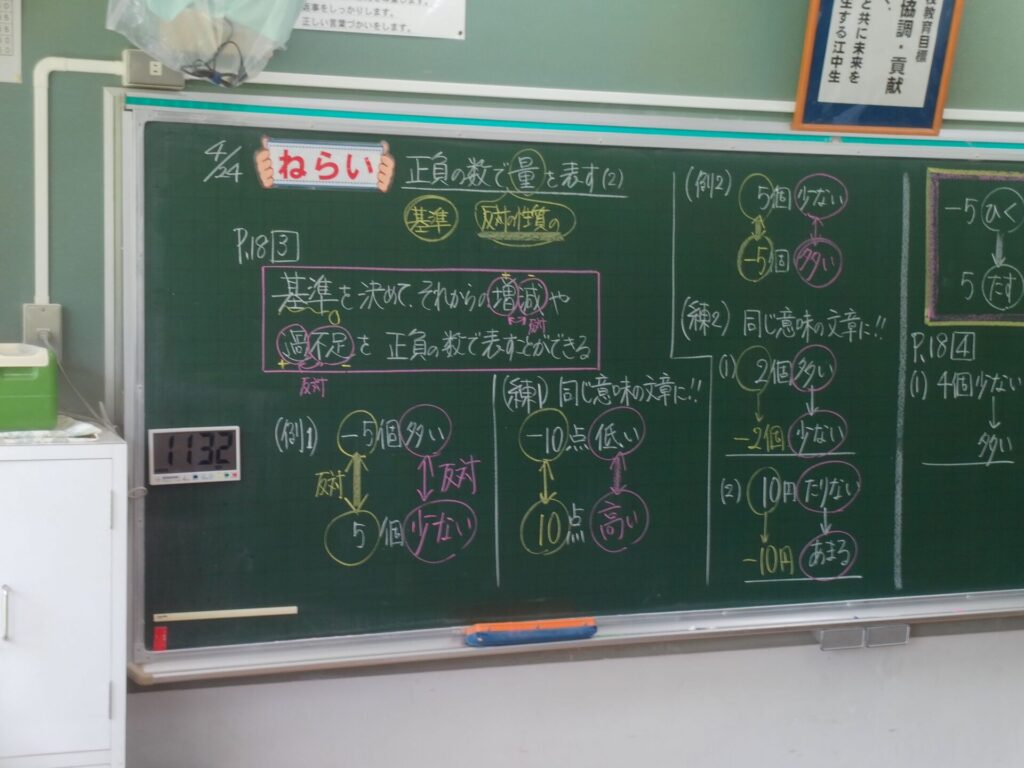 返事をしっかりします。
正しい言葉づかいをします。
校教育目標
協調・貢献
と共に未来を
生する江中生
4/24
ねらい
正負の数で量を表す(2)
基準 反対の性質の
P.18 3
基準を決めて、それからの増減や
+ -
反対
過不足を正負の数で表すことができる
+ -
反対
(例1) -5個多い
反対 反対
5個少ない
(練1) 同じ意味の文章に!!
-10点低い
10点高い
(例2) 5個少ない
-5個多い
(練2) 同じ意味の文章に!!
(1) 2個多い
-2個少ない
(2) 10円たりない
-10円あまる
-5ひく
5たす
P.18 4
(1) 4個少ない
多い
1132